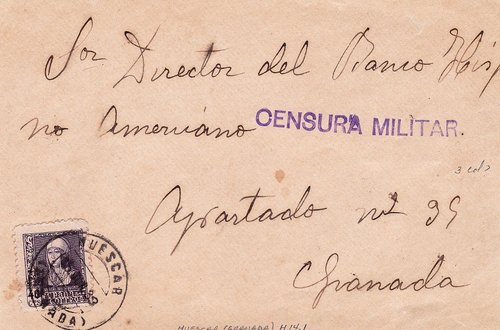 Sor Director del Banco Hisp
no Americano
CENSURA MILITAR.
3 cols
Apartado nº 35
Granada
HUESCAR
ADA)
HUESCAR (GRANADA) H 14.1